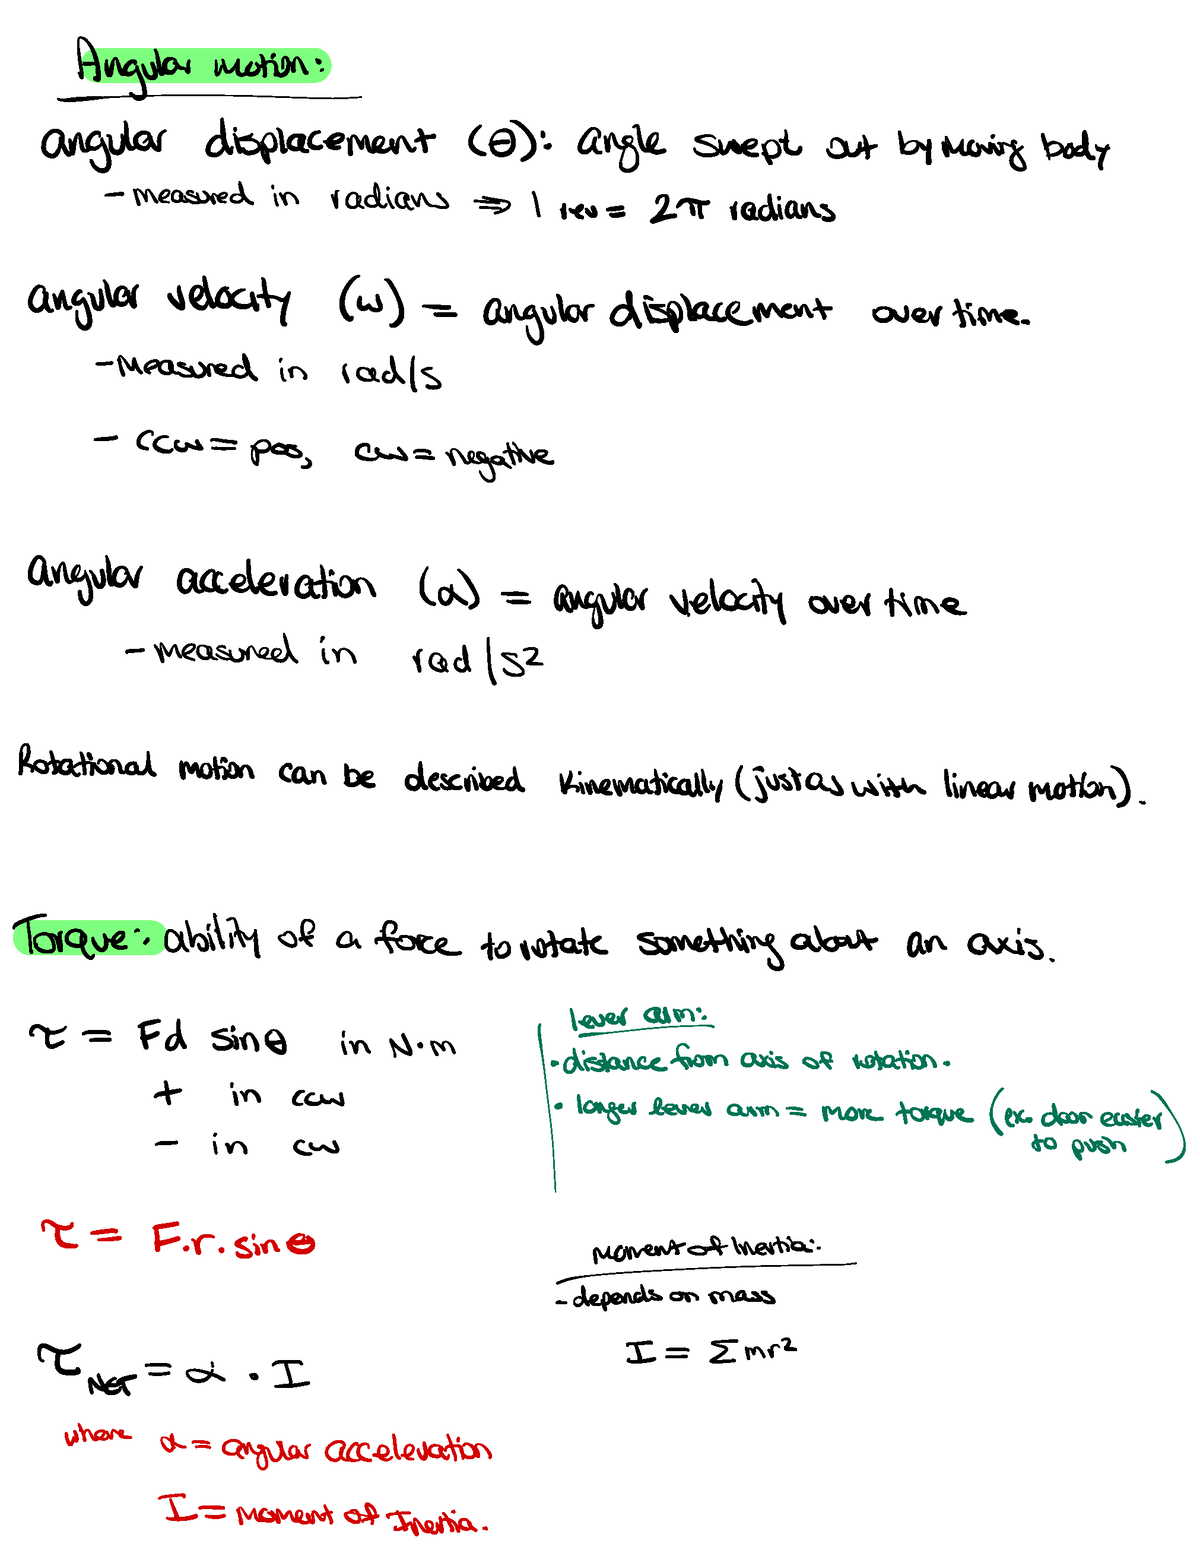 Angular motion:
angular displacement (θ): angle swept out by moving body
- measured in radians ⇒ 1 rev = 2π radians
angular velocity (ω) = angular displacement over time.
- Measured in rad/s
- ccw = pos, cw = negative
angular acceleration (α) = angular velocity over time
- measured in rad/s²
Rotational motion can be described kinematically (just as with linear motion).
Torque: ability of a force to rotate something about an axis.
τ = Fd sinθ in N·m
+ in ccw
- in cw
lever arm:
• distance from axis of rotation.
• longer lever arm = more torque (ex. door easier to push)
τ = F.r.sinθ
Moment of Inertia:
- depends on mass
I = Σmr²
τ NET = α · I
where α = angular acceleration
I = moment of Inertia.